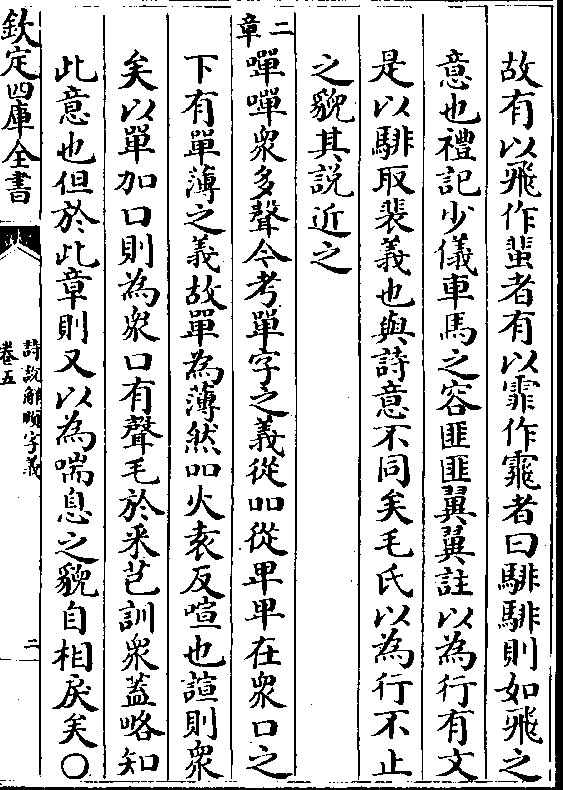 故有以飛作蜚者有以霏作䨾者曰騑騑則如飛之
意也禮記少儀車馬之容匪匪翼翼註以為行有文
是以騑取裴義也與詩意不同矣毛氏以為行不止
之貌其說近之
二章
嘽嘽衆多聲今考單字之義從吅從甲甲在衆口之
下有單薄之義故單為薄然吅火袁反喧也諠則衆
矣以單加口則為衆口有聲毛於采芑訓衆蓋略知
此意也但於此章則又以為喘息之貌自相戾矣〇
欽定四庫全書
詩說解頤字義
卷五
二